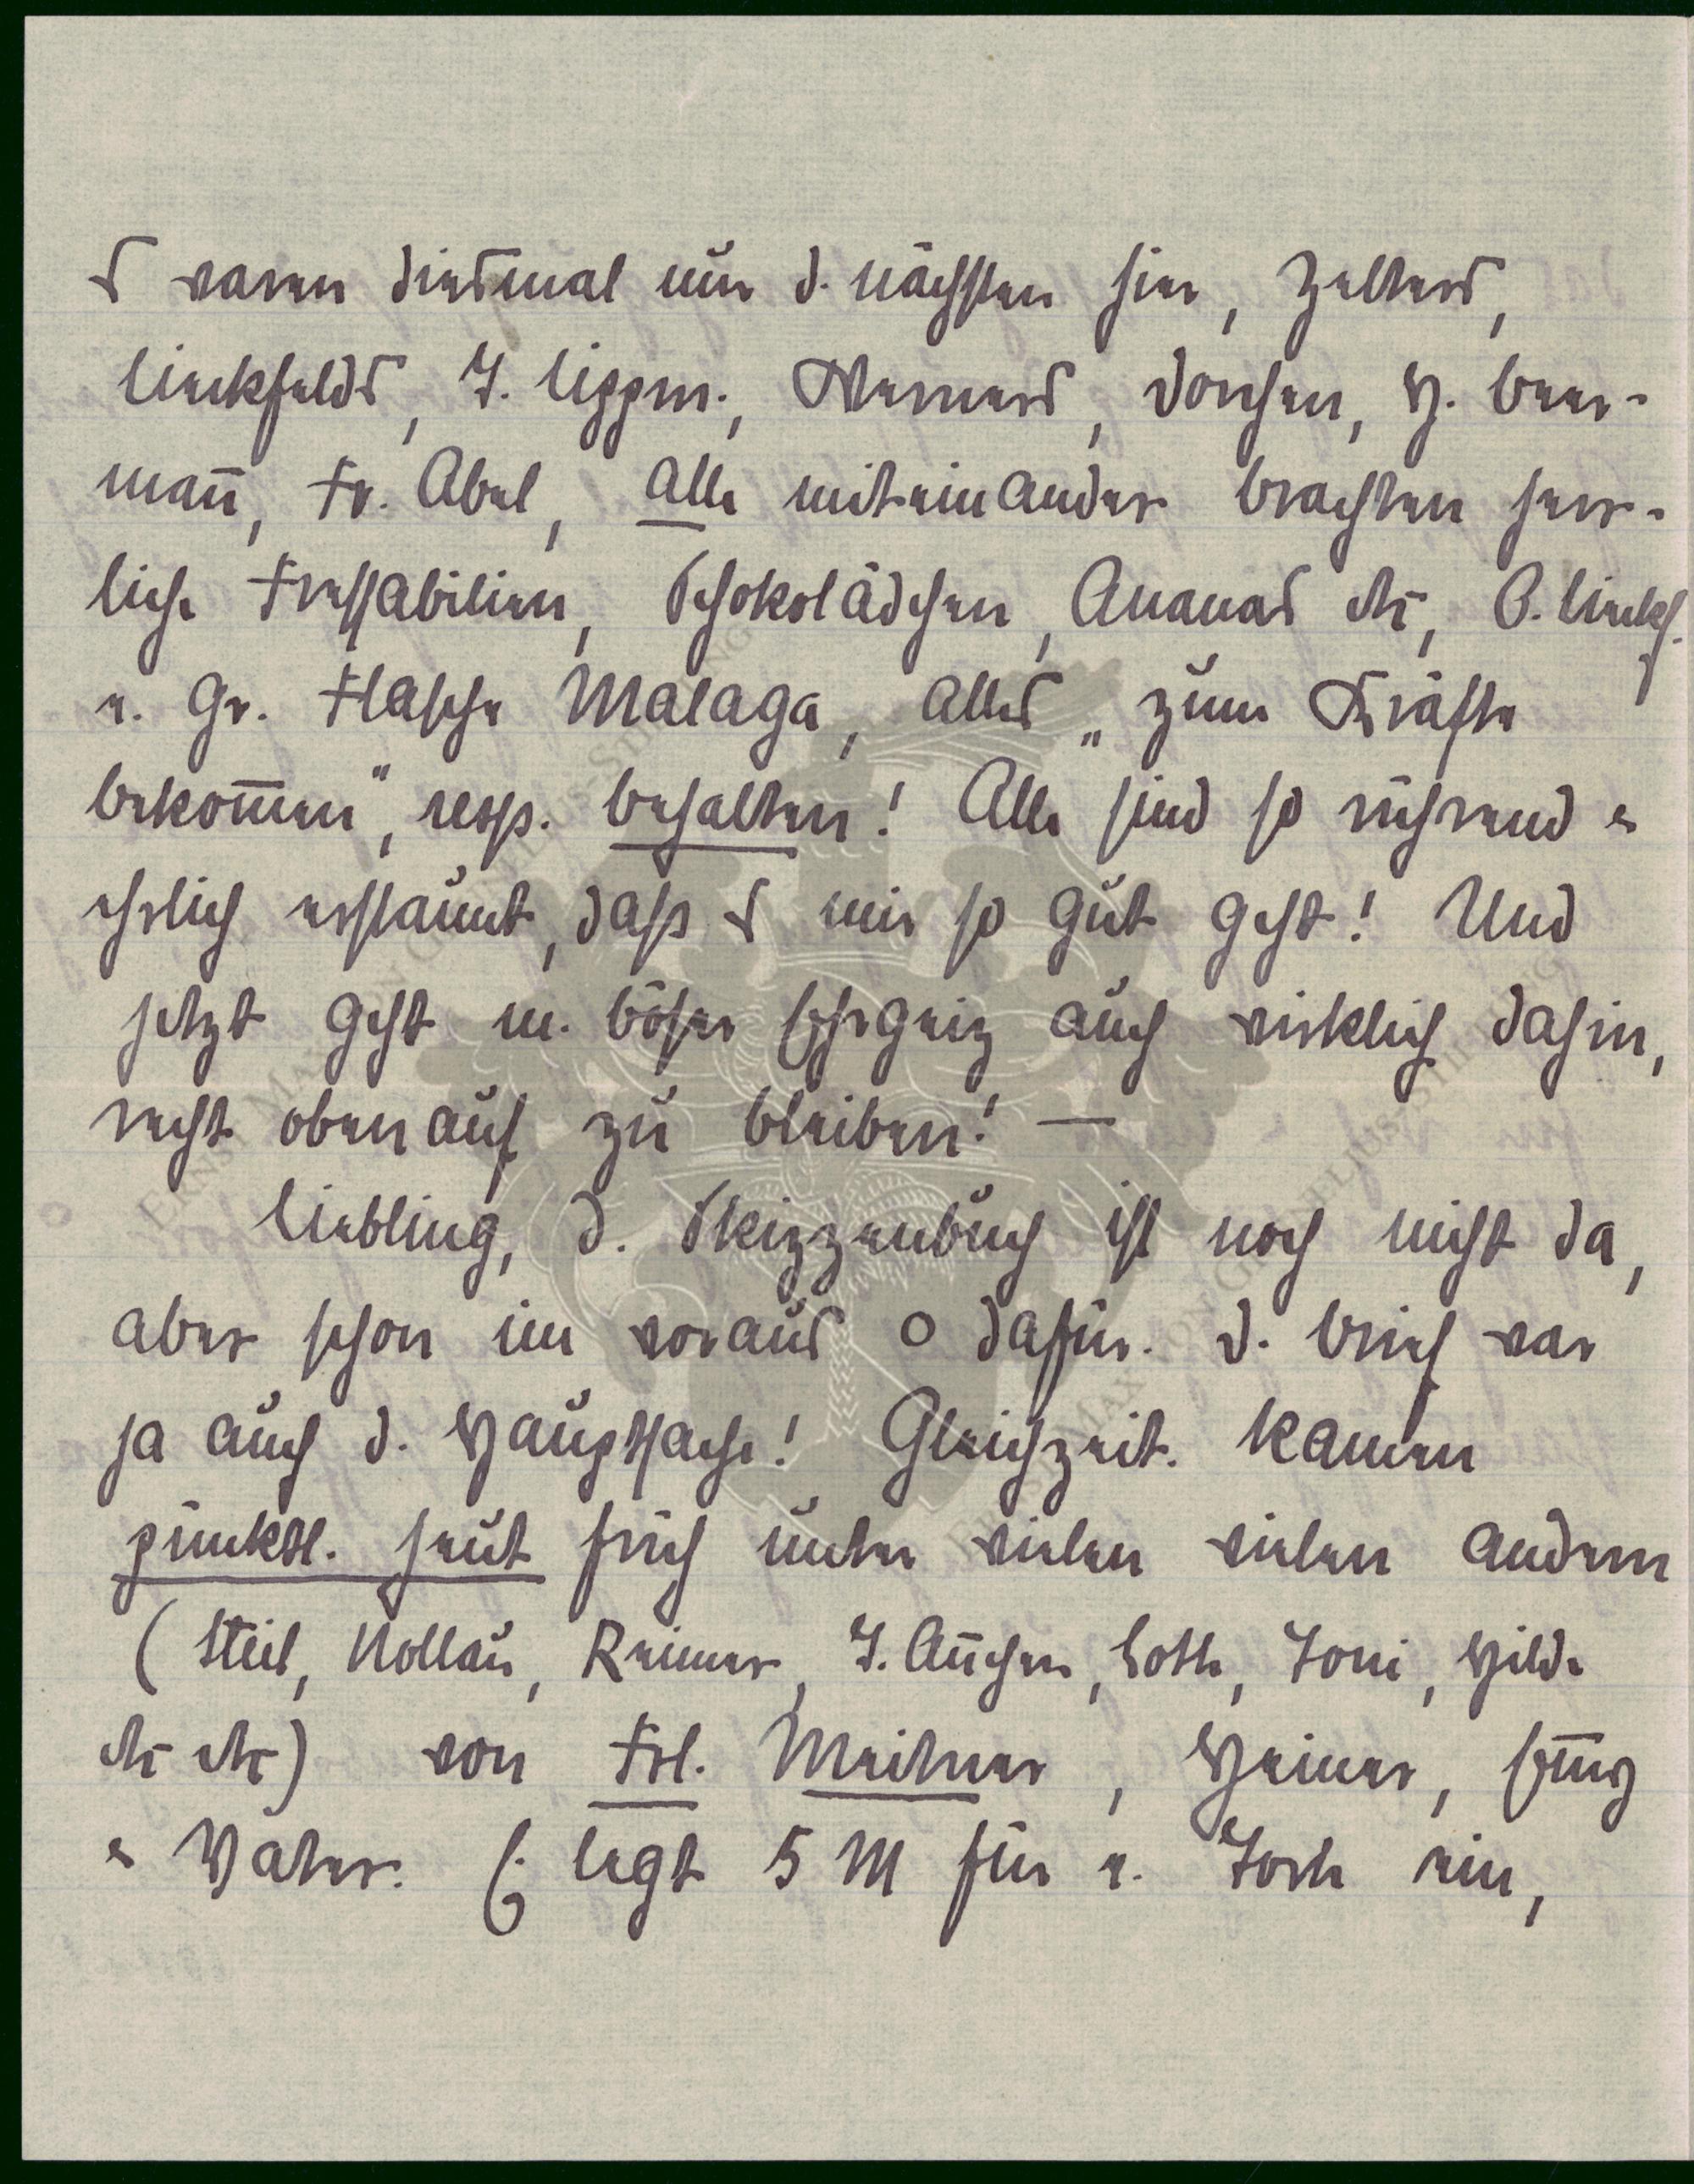 Es waren diesmal nur d. Nächsten hier, Zelters,
Linckfelds, J. Lippm., Werners, Dorchen, H. Beer-
mañ, Fr. Abel, alle miteinander brachten herr-
liche Fressabilien, Schokolädchen, Ananas etc, O. Linckf.
e. gr. Flasche Malaga, alles „zum Kräfte
bekom̄en", resp. behalten! Alle sind so rührend &
ehrlich erstaunt, dass es mir so gut geht! Und
jetzt geht m. böser Ehrgeiz auch wirklich dahin,
recht obenauf zu bleiben! —
Liebling, d. Skizzenbuch ist noch nicht da,
aber schon im voraus o dafür. D. Brief war
ja auch d. Hauptsache! Gleichzeit. kamen
pünktl. heut früh unter vielen vielen andern
(Steil, Nollau, Reimer, J. Añchen, Lotte, Toni, Hilde
etc etc) von Frl. Meitner, Heiner,
& Vater. E. legt 5 M für e. Torte ein,
ERNST MAX VON GRUNELIUS-STIFTUNG